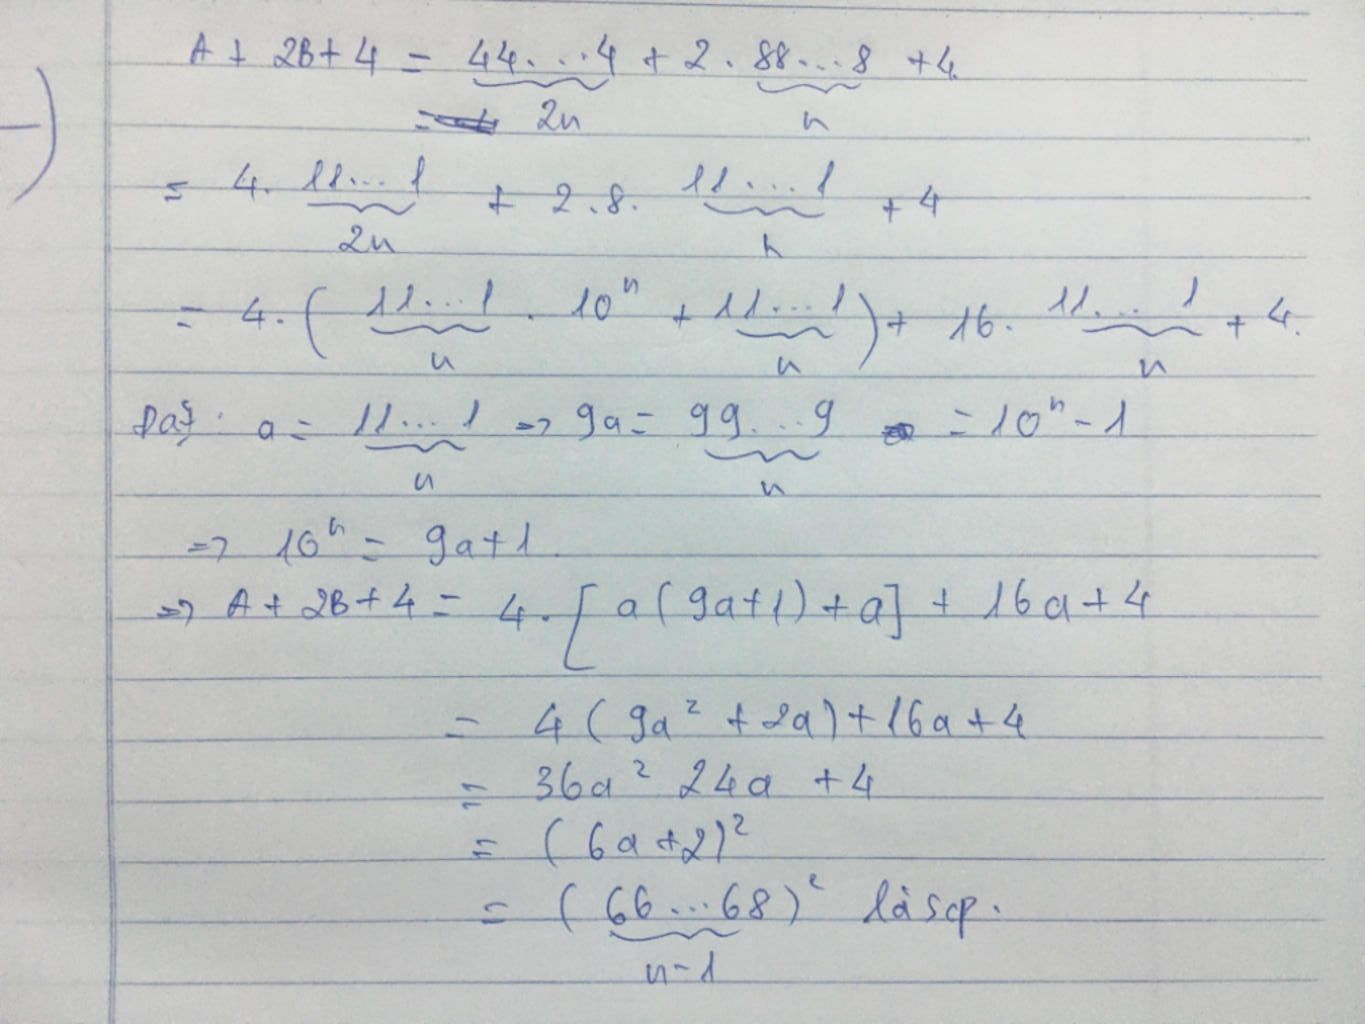 A + 2B + 4 = 44...4 + 2. 88...8 + 4.
= 2n n
= 4. 11...1 + 2.8. 11...1 + 4
2n n
= 4. ( 11...1 . 10ⁿ + 11...1 ) + 16. 11...1 + 4.
n n n
Đặt: a = 11...1 => 9a = 99...9 = 10ⁿ - 1
n n
=> 10ⁿ = 9a+1.
=> A + 2B + 4 = 4. [ a ( 9a+1) + a] + 16a + 4
= 4 ( 9a² + 2a) + 16a + 4
= 36a² 24a + 4
= ( 6a + 2)²
= ( 66...68 )² là scp.
n-1